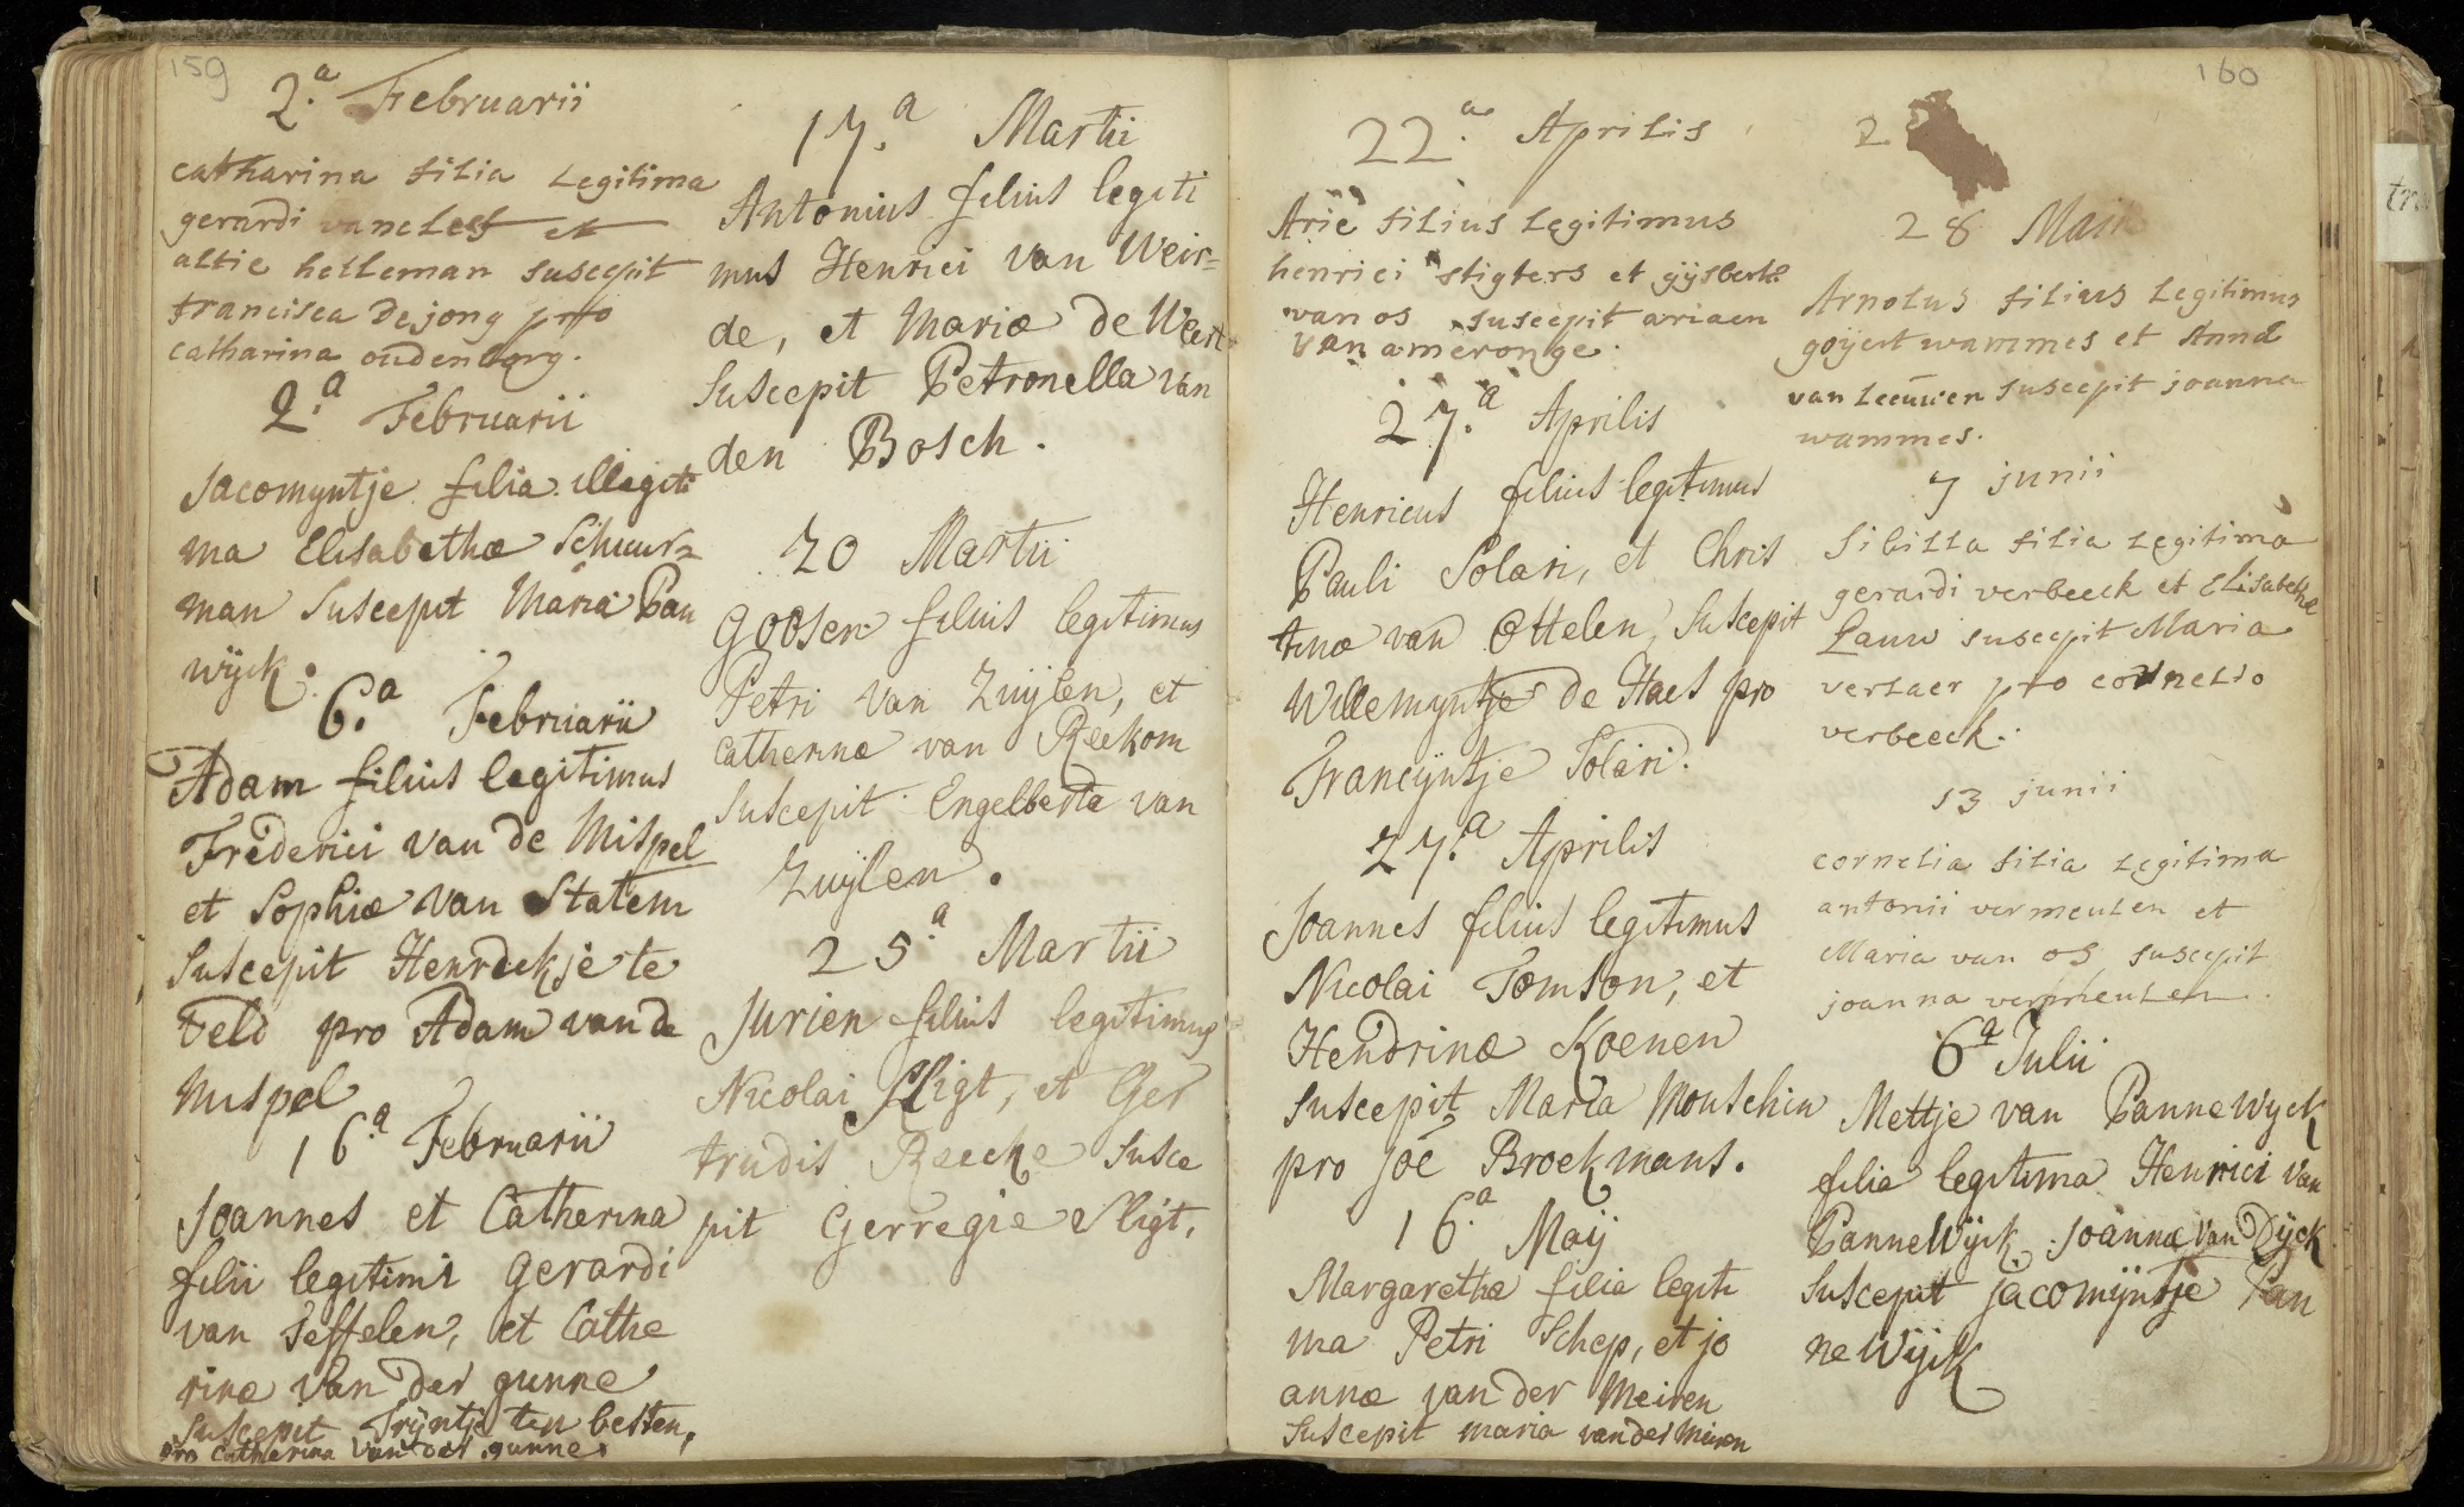 159
2.a Februarii
catharina filia Legitima
gerardi vanelest et
altie helleman suscepit
francisca de jong pro
catharina oudenborg.
2.a Februarii
Jacomyntje filia illegiti
ma Elisabethæ Schuur=
man Suscepit Maria Pan
wÿck.
6.a Februarii
Adam filius legitimus
Frederici van de Mispel
et Sophiæ van Statem
Suscepit Henrdekje te
Veld pro Adam van de
Mispel
16.a Februarii
Joannes et Catherina
filii legitimi Gerardi
van Teffelen, et Cathe
rinæ van der gunne
Suscepit Trÿntje ten besten,
pro Catherina van der gunne.
17.a Martii
Antonius filius legiti
mus Henrici van Weir=
de, et Mariæ de Weert
Suscepit Petronella van
den Bosch.
20 Martii
Goosen filius legitimus
Petri van Zuÿlen, et
Catherinæ van Reekom
Suscepit Engelberta van
Zuÿlen.
25.a Martii
Jurien filius legitimus
Nicolai Sligt, et Ger
trudis Reecke Susce
pit Gerregie Sligt.
160
22.a Aprilis
Arie filius Legitimus
henrici stigters et gÿsbertæ
van os suscepit ariaen
van ameronge.
27.a Aprilis
Henricus filius legitimus
Pauli Solari, et Chris
tinæ van Ottelen, Suscepit
Willemyntje de Haes pro
Francÿntje Solari.
27.a Aprilis
Joannes filius legitimus
Nicolai Tomson, et
Hendrinæ Koenen
Suscepit Maria Mouschin
pro Joe Broekmans.
16.a Maÿ
Margaretha filia legiti
ma Petri Schep, et jo
annæ van der Meiren
Suscepit maria van der Meiren
2
28 Maii
Arnolus filius Legitimus
goÿert wammes et Anna
van Leeuwen suscepit joanna
wammes.
7 junii
Sibilla filia Legitima
gerardi verbeeck et Elisabethæ
Lauw suscepit Maria
verlaer pro cornelio
verbeeck.
13 junii
cornelia filia Legitima
antonii vermeulen et
Maria van os suscepit
joanna vermeulen.
6a Julii
Mettje van Pannewyck
filia legitima Henrici van
PanneWÿck Joannæ van Dÿck
Suscepit jacomÿntje Pan
neWÿck